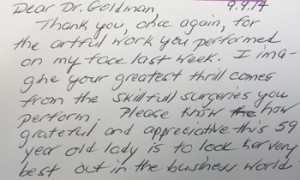 Dear Dr. Goldman, 9.9.14
Thank you, once again, for
the artful work you performed
on my face last week. I ima-
gine your greatest thrill comes
from the skillfull surgeries you
perform. Please know how
grateful and appreciative this 59
year old lady is to look her very
best out in the business world